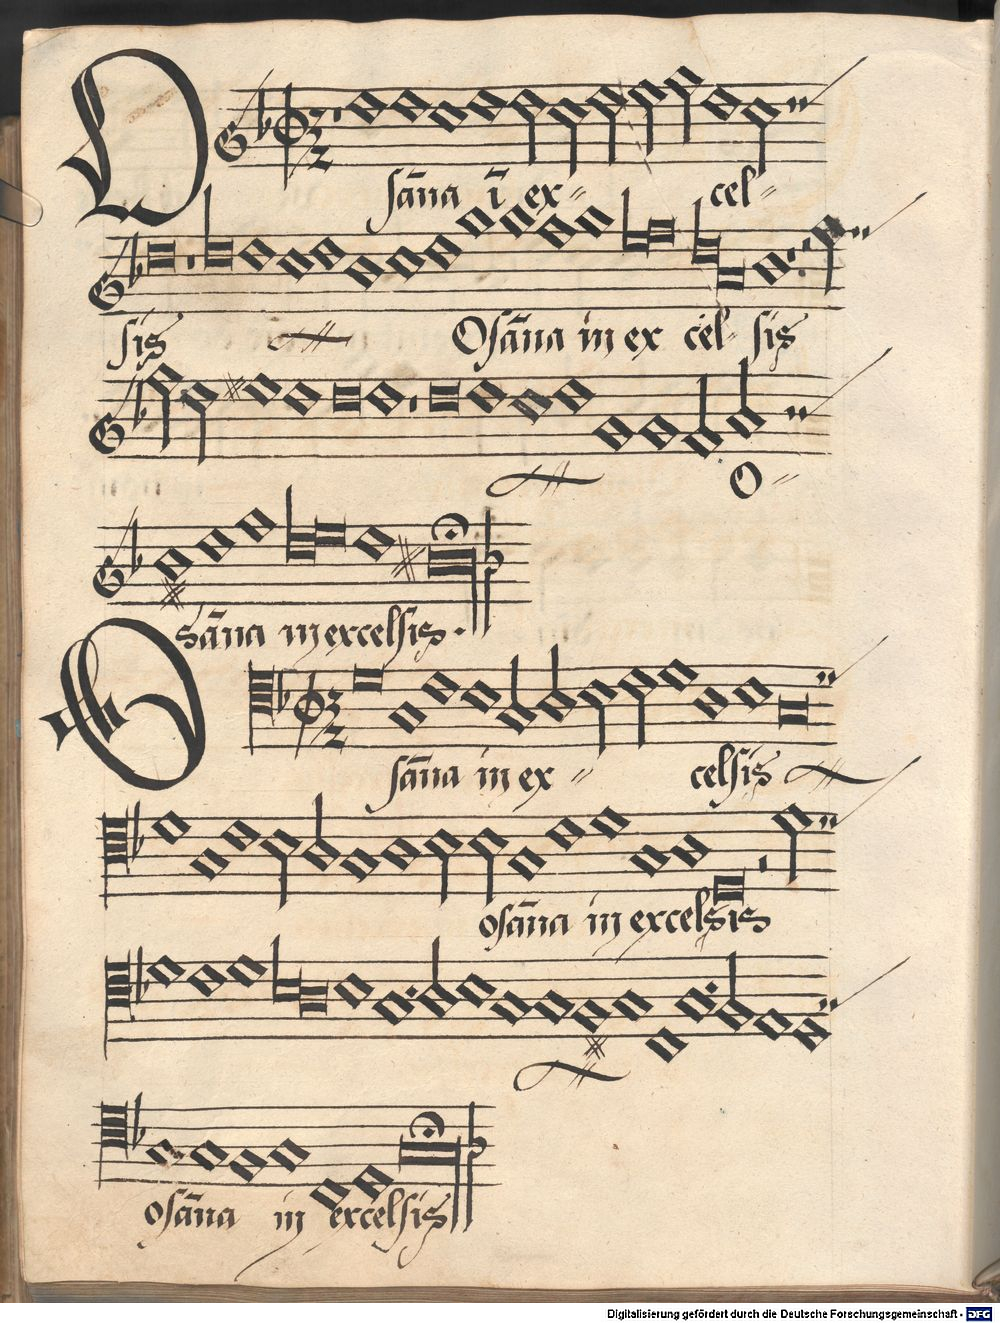 O
sāna ī ex- cel-
sis Osāna in ex cel- sis
O-
sāna in excelsis.
O
sāna in ex- celsis
osāna in excelsis
osāna in excelsis
Digitalisierung gefördert durch die Deutsche Forschungsgemeinschaft - DFG